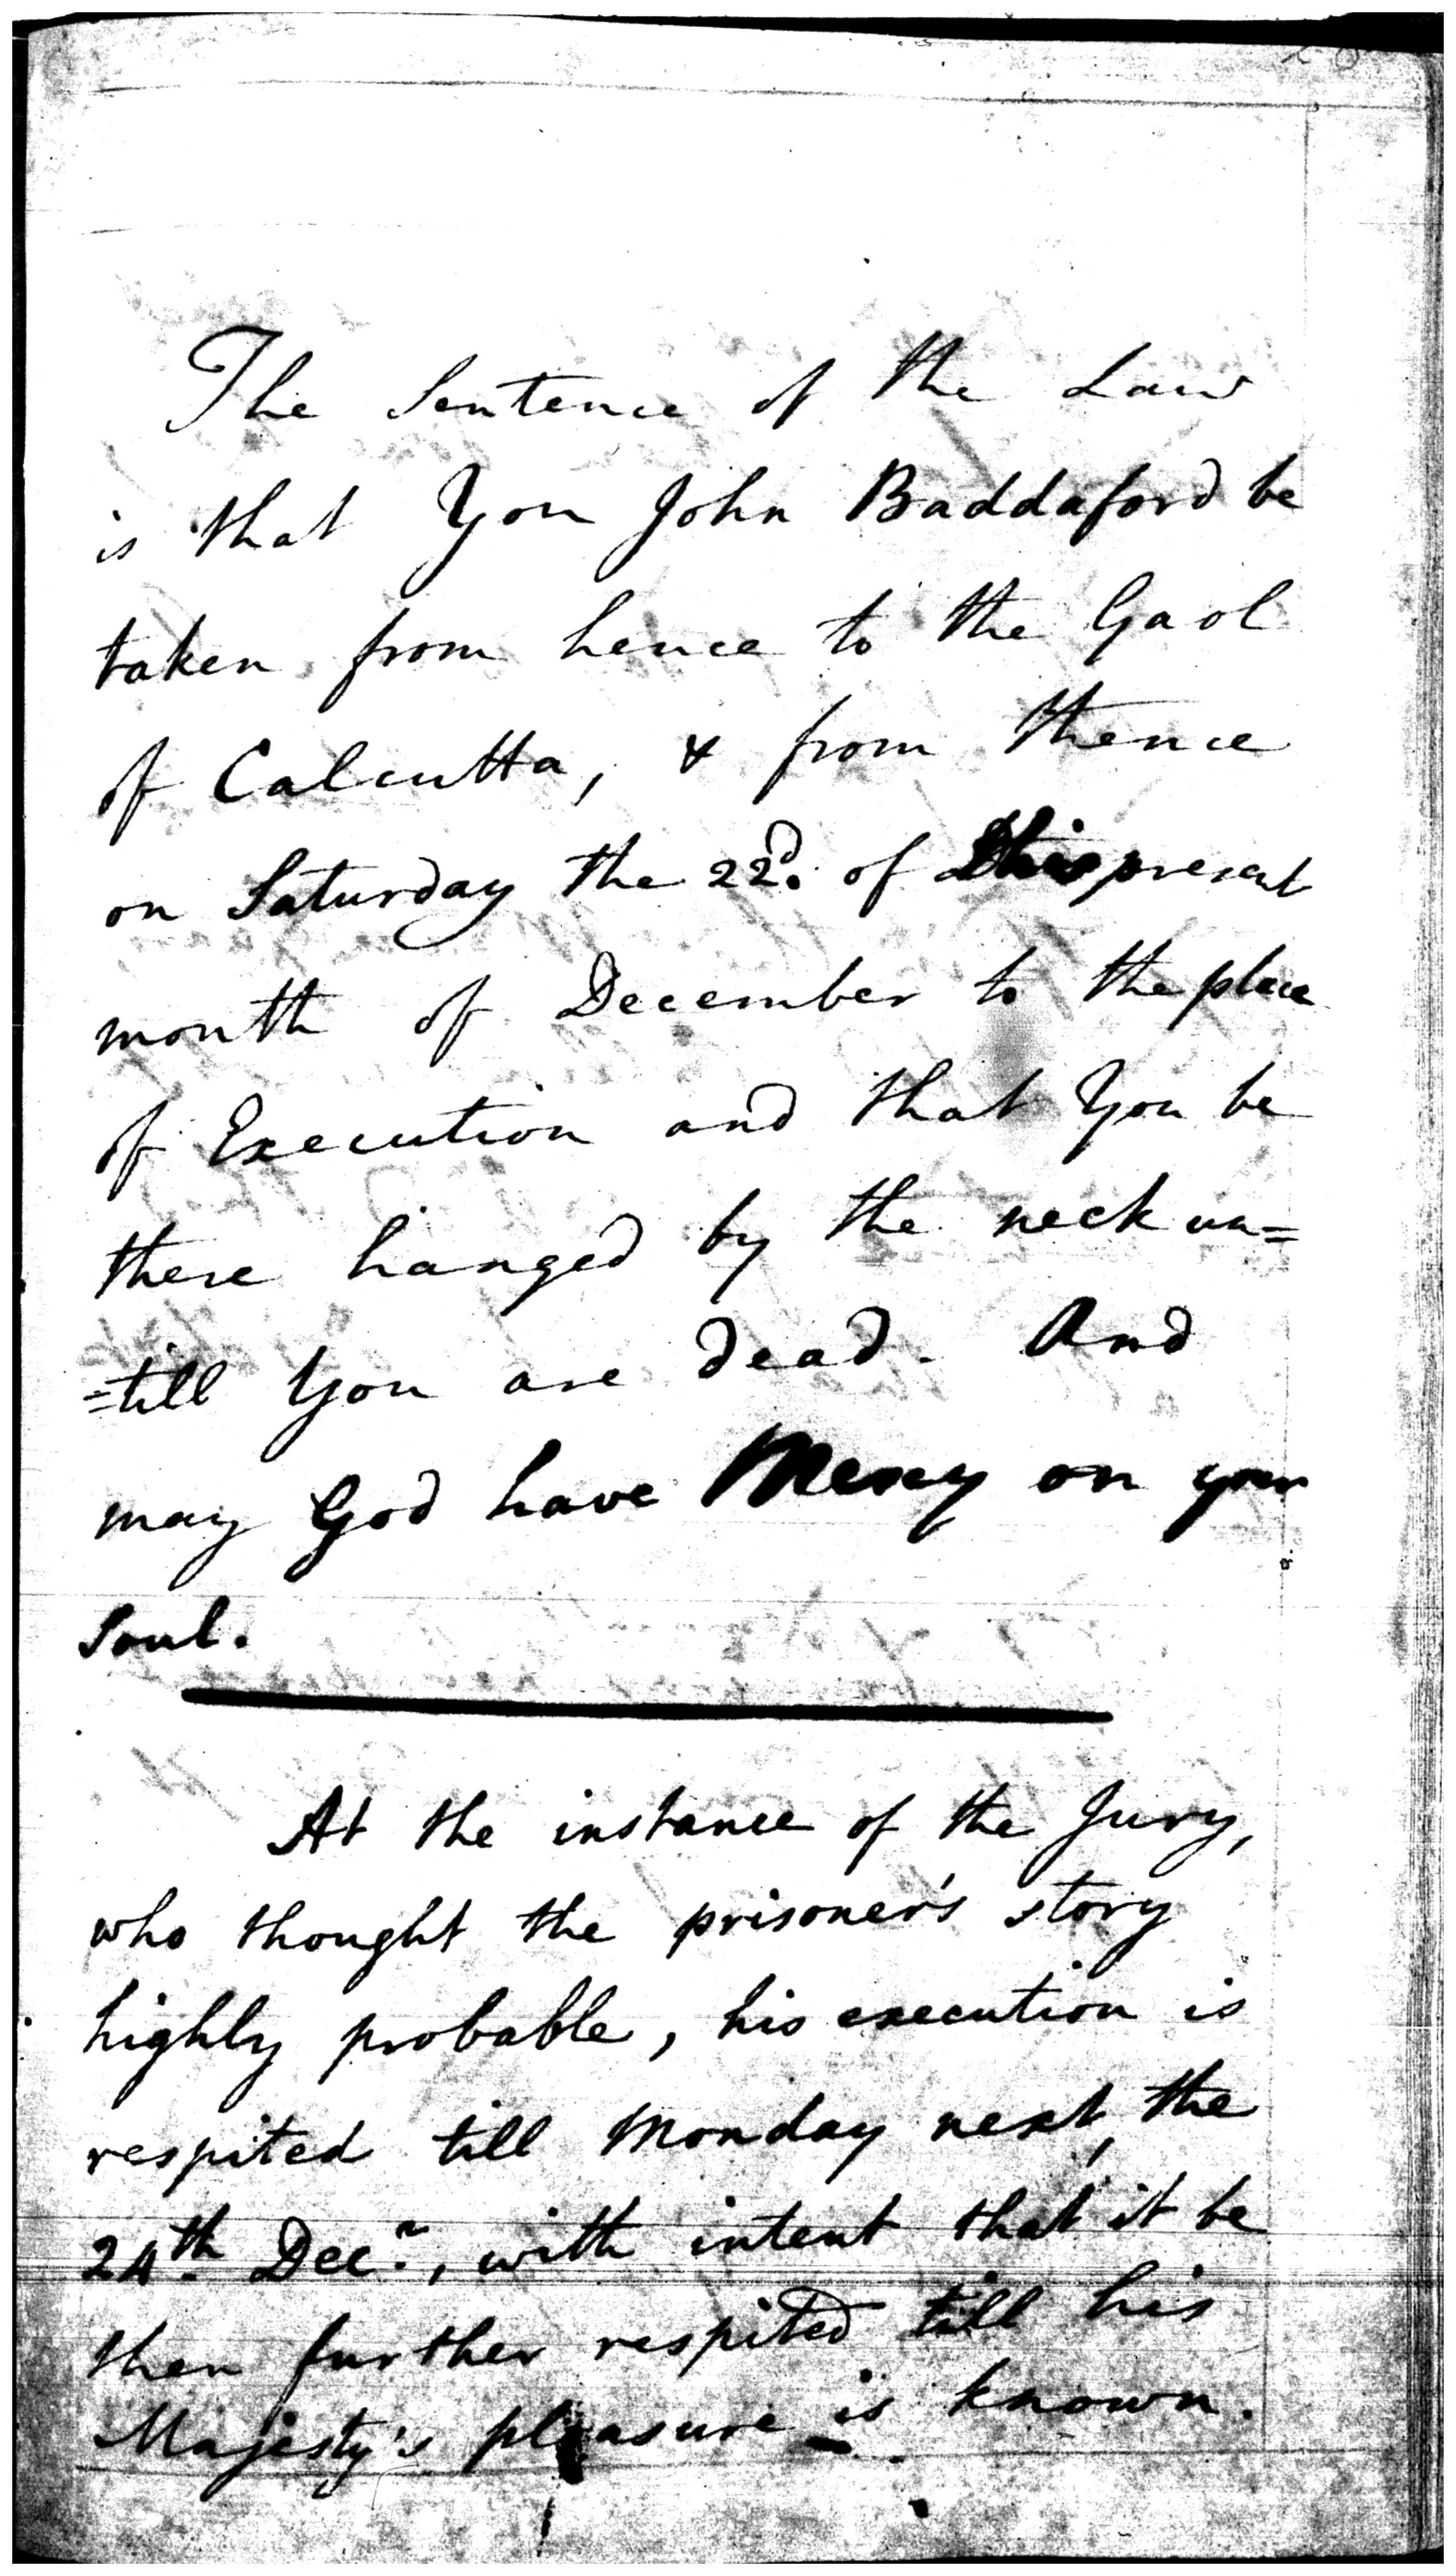 The Sentence of the Law
is that You John Baddaford be
taken from hence to the Gaol
of Calcutta, & from thence
on Saturday the 22d. of this present
month of December to the place
of Execution and that You be
there hanged by the neck un=
=till You are dead. And
may God have Mercy on your
Soul.
At the instance of the Jury,
who thought the prisoner's story
highly probable, his execution is
respited till Monday next, the
24th. Decr., with intent that it be
then further respited till his
Majesty's pleasure is known.